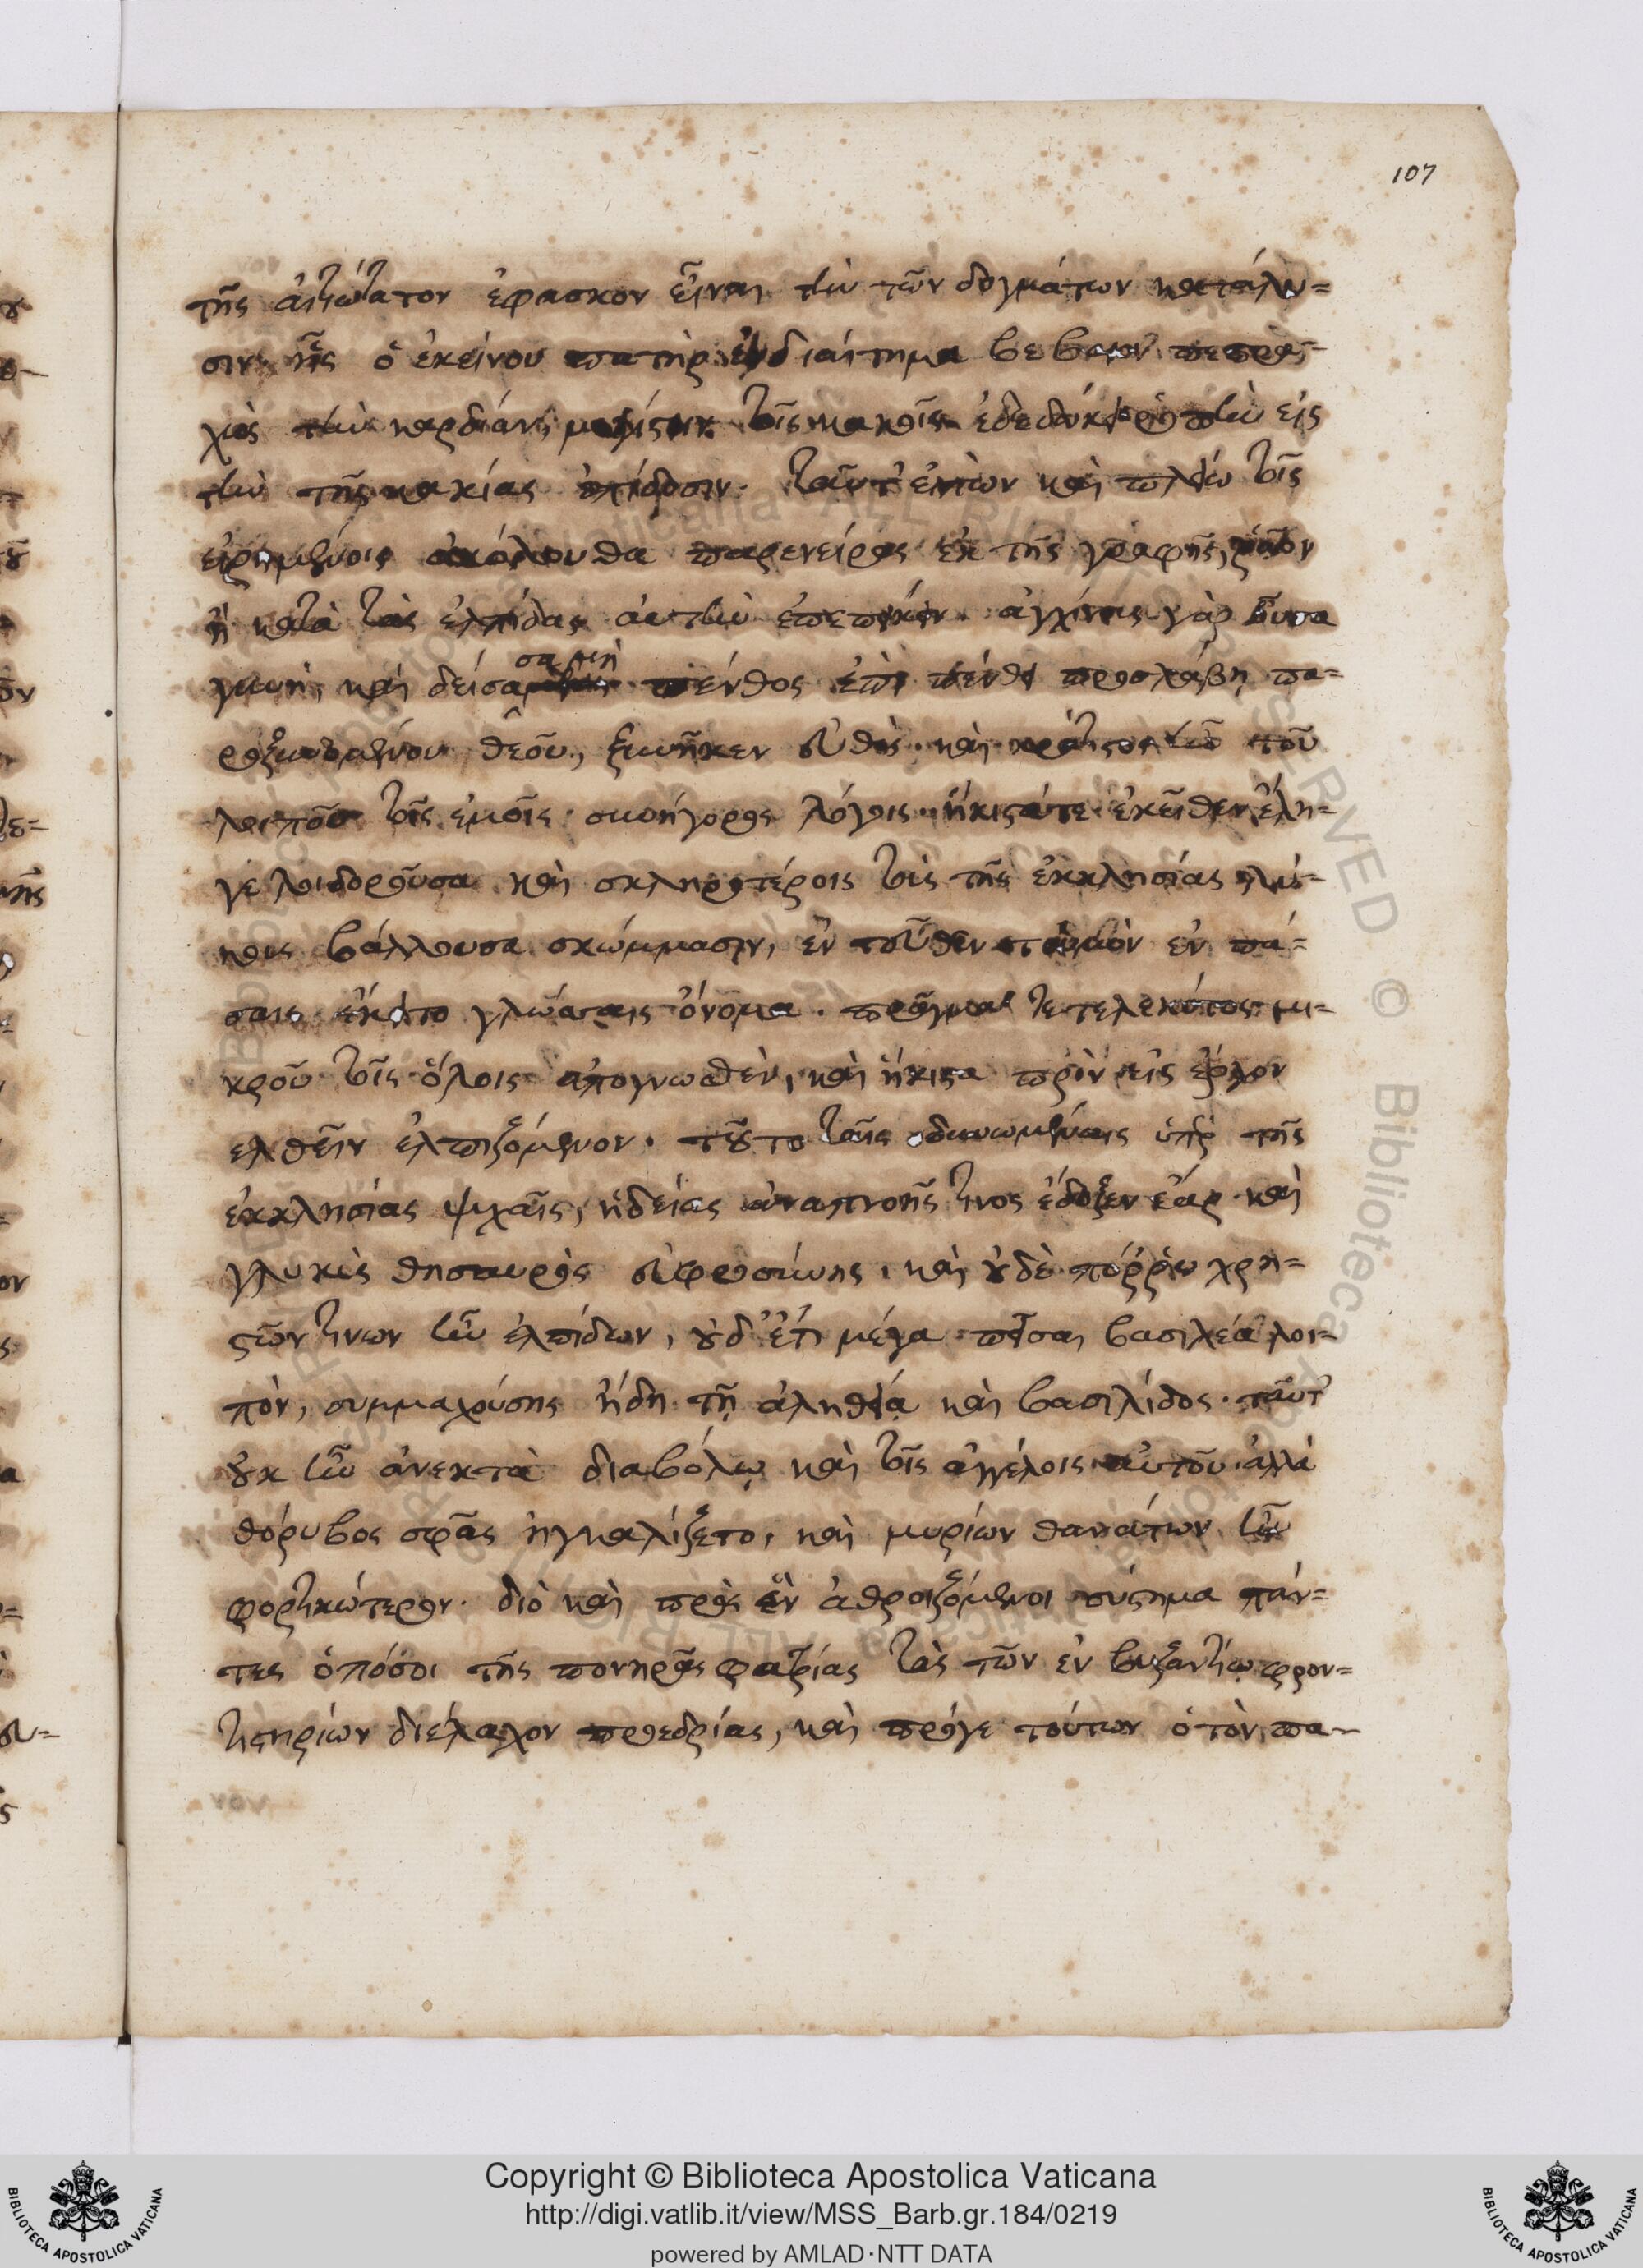 107
τῆς αἰτιώτατον ἔφασκον εἶναι τὴν τῶν δογμάτων κατάλυ=
σιν· ἧς ὁ ἐκείνου πατὴρ ἐνδιαίτημα
τὴν καρδίαν, τοῖς κακοῖς εἰς
τὴν τῆς κακίας ἐπίδοσιν. ταῦτ' εἰπὼν καὶ πλείω τοῖς
εἰρημένοις ἀκόλουθα παρενείρας ἐκ τῆς γραφῆς, ῥᾷον
ἢ κατὰ τὰς ἐλπίδας αὐτὴν ἐπεπείκειν. ἀγχίνους γὰρ οὖσα
σα μὴ
γυνὴ, καὶ δείσα πένθος ἐπὶ πένθει προσλάβῃ πα=
ροξυνομένου θεοῦ, ξυνῆκεν εὐθὺς· καὶ ἦν τοῦ
λοιποῦ τοῖς ἐμοῖς συνήγορος λόγοις· ἥκιστά τε ἐκεῖθεν ἔλη=
γε λοιδοροῦσα καὶ σκληροτέροις τοὺς τῆς ἐκκλησίας λύ=
κους βάλλουσα σκώμμασιν, ἐντεῦθεν τοὐμὸν ἐν πά=
σαις ἔκειτο γλώτταις ὄνομα. πρᾶγμα τετελεκότος μι=
κροῦ τοῖς ὅλοις ἀπογνωσθὲν, καὶ ἥκιστα πρὶν εἰς ἔργον
ελθεῖν ἐλπιζόμενον. τοῦτο ταῖς ὀδυνωμέναις ὑπὲρ τῆς
ἐκκλησίας ψυχαῖς, ἡδείας ἀναπνοῆς τινος ἔδοξεν ἔαρ καὶ
γλυκὺς θησαυρὸς εὐφροσύνης. καὶ οὐδὲ πόῤῥω χρη=
στῶν τινων ἦν ἐλπίδων, οὐδ' ἔτι μέγα πεῖσαι βασιλέα λοι=
πὸν, συμμαχούσης ἤδη τῇ ἀληθείᾳ καὶ βασιλίδος. ταῦτ'
οὐκ ἦν ἀνεκτὰ διαβόλῳ καὶ τοῖς ἀγγέλοις αὐτοῦ· ἀλλὰ
θόρυβος σφᾶς ἠγκαλίζετο, καὶ μυρίων θανάτων ἦν
φορτικώτερον. διὸ καὶ πρὸς ἓν ἀθροιζόμενοι σύστημα πάν=
τες ὁπόσοι τῆς πονηρᾶς φατρίας τὰς τῶν ἐν βυζαντίῳ φρον=
τιστηρίων διέλαχον προεδρίας, καὶ πρό γε τούτων ὁ τὸν πα=
Copyright © Biblioteca Apostolica Vaticana
http://digi.vatlib.it/view/MSS_Barb.gr.184/0219
powered by AMLAD·NTT DATA
BIBLIOTECA APOSTOLICA VATICANA
BIBLIOTECA APOSTOLICA VATICANA